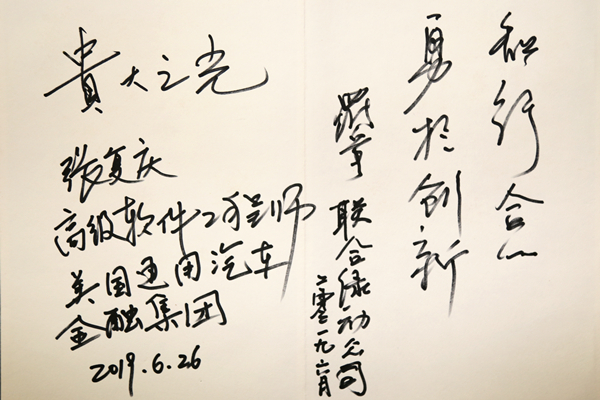 貴大之光
张复庆
高级软件工程师
美国通用汽车
金融集团
2019.6.26
知行合一
勇於创新
联合绿动公司
二零一九六月